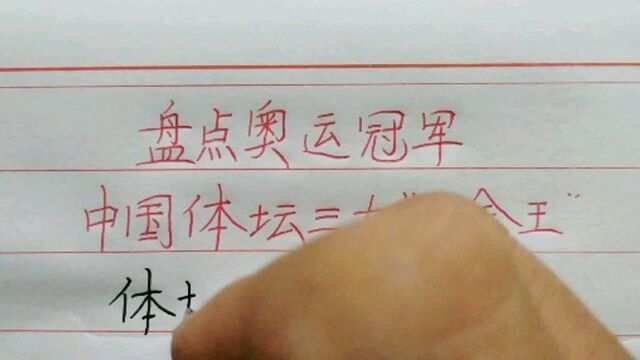 盘点奥运冠军
中国体坛三大"金王"
体